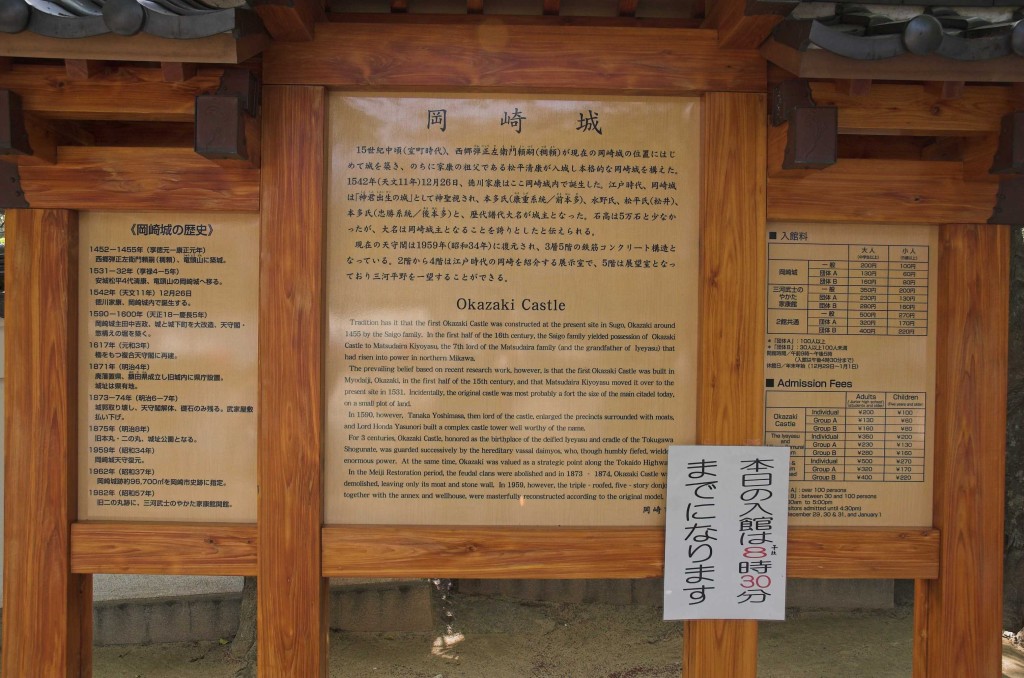 《岡崎城の歴史》
1452－1455年(享徳元－康正元年)
西郷弾正左衛門頼嗣(稠頼)、竜頭山に築城。
1531－32年(享禄4－5年)
安城松平4代清康、竜頭山の岡崎城へ移る。
1542年(天文11年)12月26日
徳川家康、岡崎城内で誕生する。
1590－1600年(天正18－慶長5年)
岡崎城主田中吉政、城と城下町を大改造、天守閣・
惣構えの堀を築く。
1617年(元和3年)
櫓をもつ複合天守閣に再建。
1871年(明治4年)
廃藩置県、額田県成立し旧城内に県庁設置。
城址は県有地。
1873－74年(明治6－7年)
城郭取り壊し、天守閣解体、礎石のみ残る。武家屋敷
払い下げ。
1875年(明治8年)
旧本丸・二の丸、城址公園となる。
1959年(昭和34年)
岡崎城天守復元。
1962年(昭和37年)
岡崎城跡約96,700㎡を岡崎市史跡に指定。
1982年(昭和57年)
旧二の丸跡に、三河武士のやかた家康館開館。
岡崎城
15世紀中頃(室町時代)、西郷弾正左衛門頼嗣(稠頼)が現在の岡崎城の位置にはじ
めて城を築き、のちに家康の祖父である松平清康が入城し本格的な岡崎城を構えた。
1542年(天文11年)12月26日、徳川家康はここ岡崎城内で誕生した。江戸時代、岡崎城
は「神君出生の城」として神聖視され、本多氏(康重系統／前本多)、水野氏、松平氏(松井)、
本多氏(忠勝系統／後本多)と、歴代譜代大名が城主となった。石高は5万石と少なか
ったが、大名は岡崎城主となることを誇りとしたと伝えられる。
現在の天守閣は1959年(昭和34年)に復元され、3層5階の鉄筋コンクリート構造と
なっている。2階から4階は江戸時代の岡崎を紹介する展示室で、5階は展望室となっ
ており三河平野を一望することができる。
Okazaki Castle
Tradition has it that the first Okazaki Castle was constructed at the present site in Sugo, Okazaki around
1455 by the Saigo family. In the first half of the 16th century, the Saigo family yielded posession of Okazaki
Castle to Matsudaira Kiyoyasu, the 7th lord of the Matsudaira family (and the grandfather of Iyeyasu) that
had risen into power in northern Mikawa.
The prevailing belief based on recent research work, however, is that the first Okazaki Castle was built in
Myodaiji, Okazaki, in the first half of the 15th century, and that Matsudaira Kiyoyasu moved it over to the
present site in 1531. Incidentally, the original castle was most probably a fort the size of the main citadel today,
on a small plot of land.
In 1590, however, Tanaka Yoshimasa, then lord of the castle, enlarged the precincts surrounded with moats,
and Lord Honda Yasunori built a complex castle tower well worthy of the name.
For 3 centuries, Okazaki Castle, honored as the birthplace of the deified Iyeyasu and cradle of the Tokugawa
Shogunate, was guarded successively by the hereditary vassal daimyos, who, though humbly fiefed, wielded
enormous power. At the same time, Okazaki was valued as a strategic point along the Tokaido Highwa
In the Meiji Restoration period, the feudal clans were abolished and in 1873 - 1874, Okazaki Castle w
demolished, leaving only its moat and stone wall. In 1959, however, the triple - roofed, five - story donjo
together with the annex and wellhouse, were masterfully reconstructed according to the original model.
岡崎
■ 入館料
大人 小人
岡崎城 一般 200円 100円
団体A 130円 60円
団体B 160円 80円
三河武士の
やかた
家康館 一般 350円 200円
団体A 230円 130円
団体B 280円 160円
2館共通 一般 500円 270円
団体A 320円 170円
団体B 400円 220円
＊「団体A」：100人以上
＊「団体B」：30人以上100人未満
開館時間／午前9時～午後5時
(入館は午後4時30分まで)
休館日／年末年始(12月29日～1月1日)
■ Admission Fees
Adults Children
Okazaki
Castle Individual ¥200 ¥100
Group A ¥130 ¥60
Group B ¥160 ¥80
The Ieyasu and Individual ¥350 ¥200
Group A ¥230 ¥130
Group B ¥280 ¥160
Individual ¥500 ¥270
Group A ¥320 ¥170
Group B ¥400 ¥220
A) : over 100 persons
B) : between 30 and 100 persons
0am to 5:00pm
itors admitted until 4:30pm)
December 29, 30 & 31, and January 1
本日の入館は8時30分
までになります